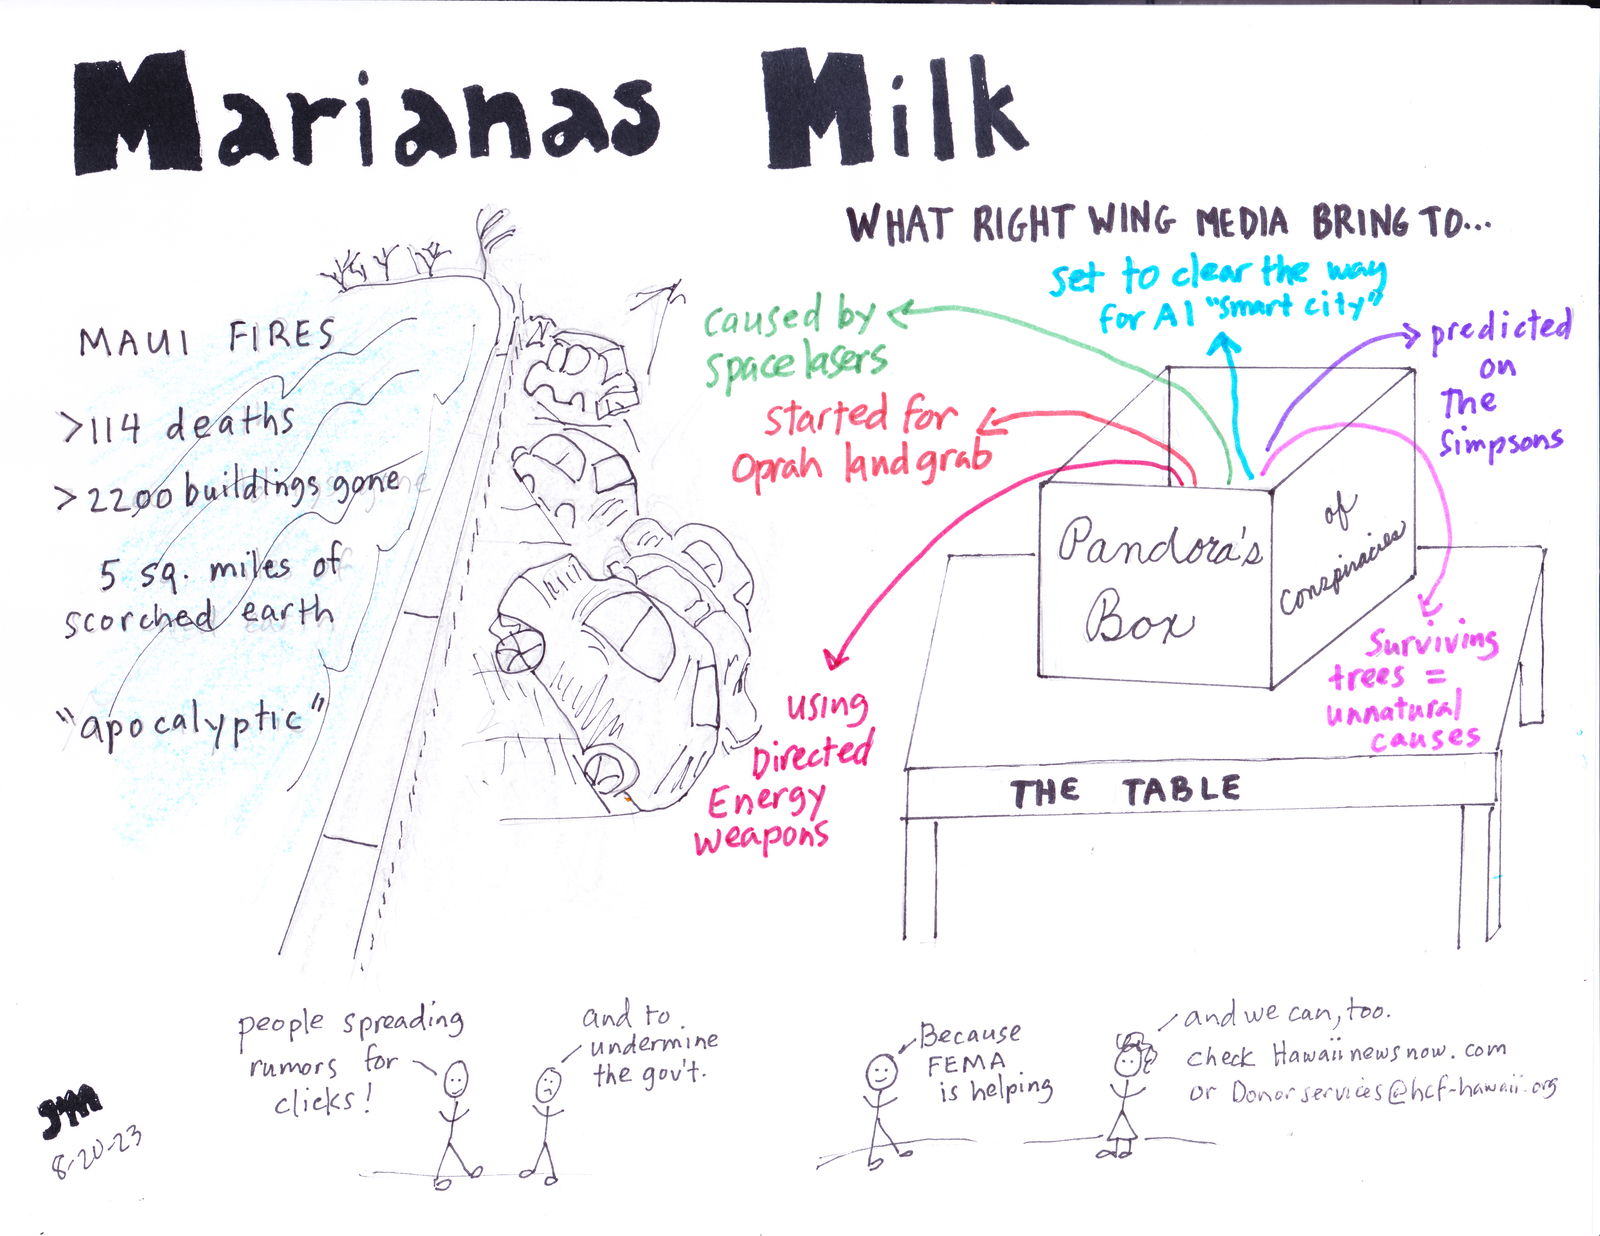 Marianas Milk
MAUI FIRES
>114 deaths
>2200 buildings gone
5 sq. miles of
scorched earth
"apocalyptic"
WHAT RIGHT WING MEDIA BRING TO...
caused by
space lasers
set to clear the way
for AI "smart city"
predicted
on
The
Simpsons
started for
Oprah landgrab
using
Directed
Energy
weapons
Surviving
trees =
unnatural
causes
Pandora's
Box
of
conspiracies
THE TABLE
people spreading
rumors for
clicks!
and to
undermine
the gov't.
Because
FEMA
is helping
and we can, too.
check Hawaiinewsnow.com
or Donorservices@hcf-hawaii.org
8-20-23